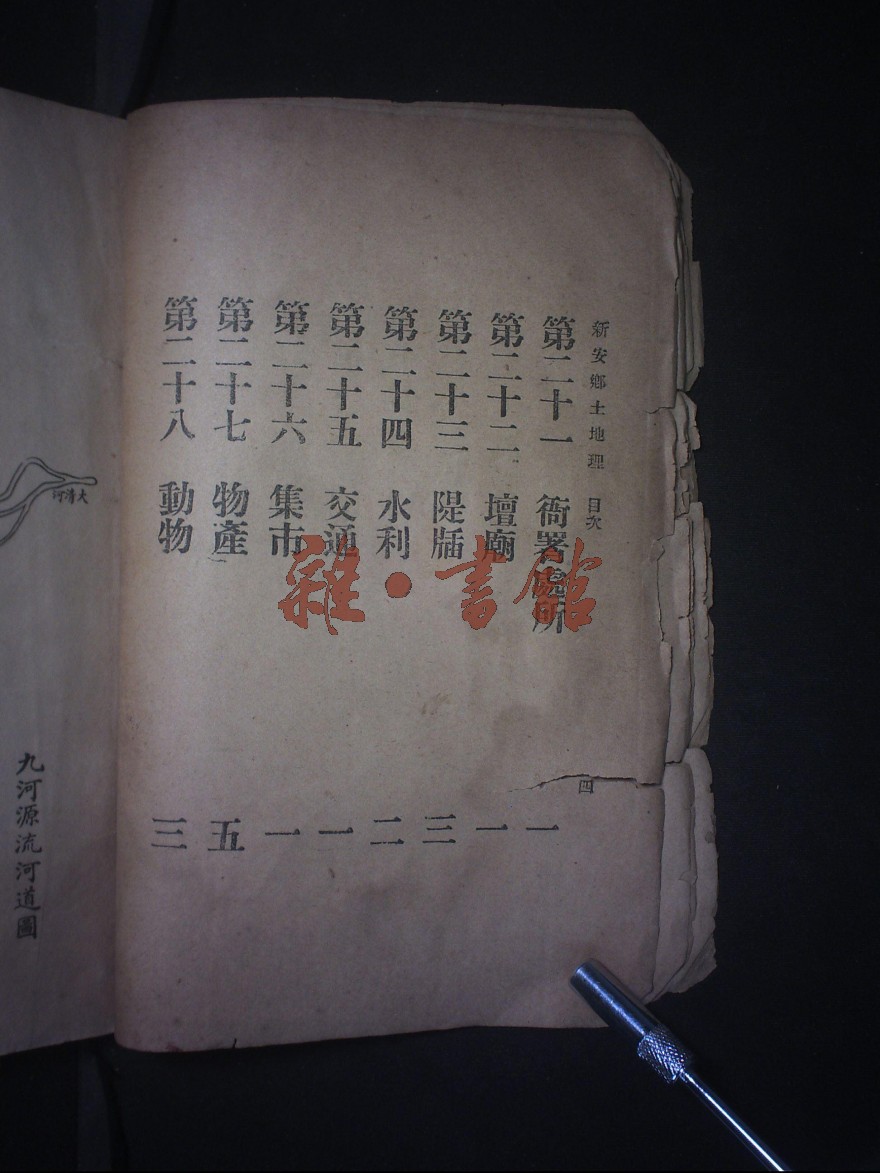 新安鄉土地理 目次 四
第二十一 衙署處所 一
第二十二 壇廟 一
第二十三 隄牐 三
第二十四 水利 二
第二十五 交通 一
第二十六 集市 一
第二十七 物產 五
第二十八 動物 三
雜·書館
大清河
九河源流河道圖